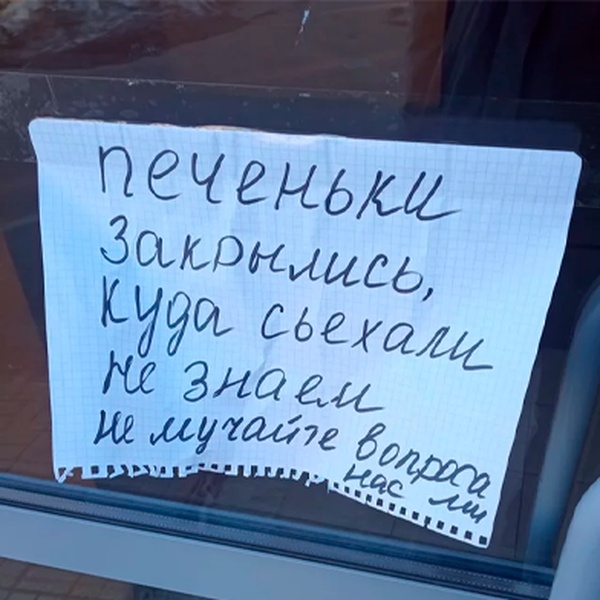 печеньки
Закрылись,
куда сьехали
не знаем
не мучайте вопроса
нас ми